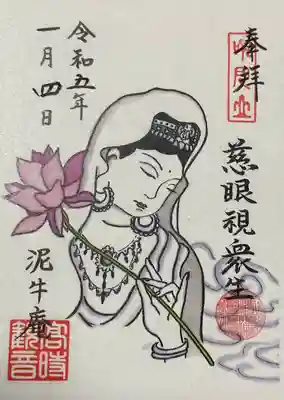 奉拜
慈眼視衆生
令和五年
一月四日
泥牛庵
高時
観音